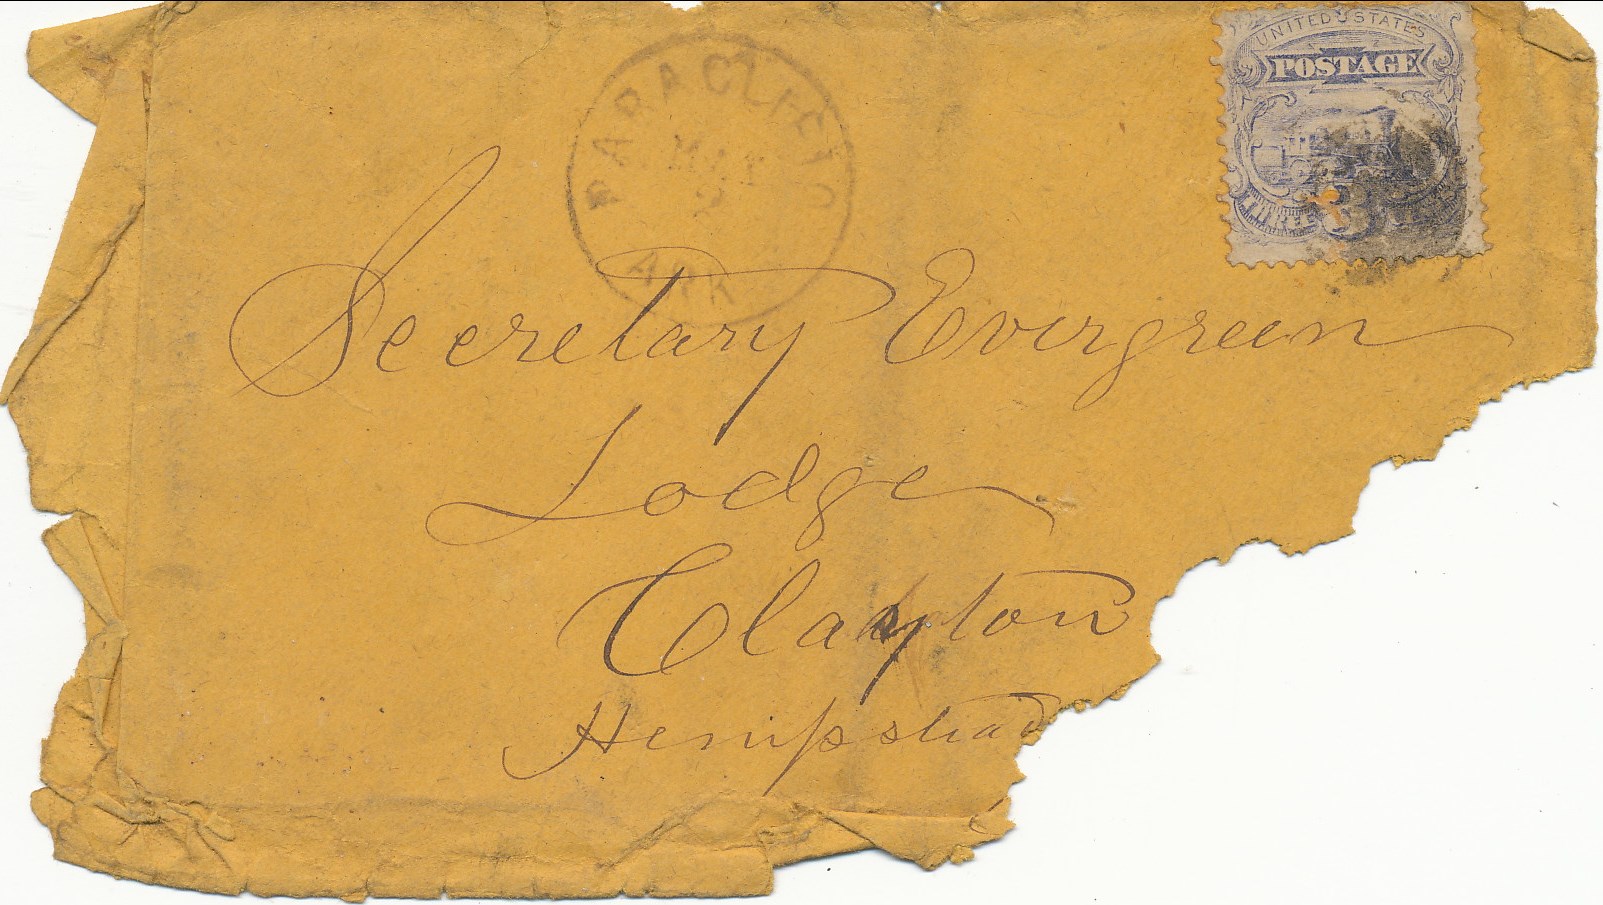 UNITED STATES
POSTAGE
THREE 3
PARACLIFTA
MAY
2
ARK
Secretary Evergreen
Lodge
Clayton
Hempstead